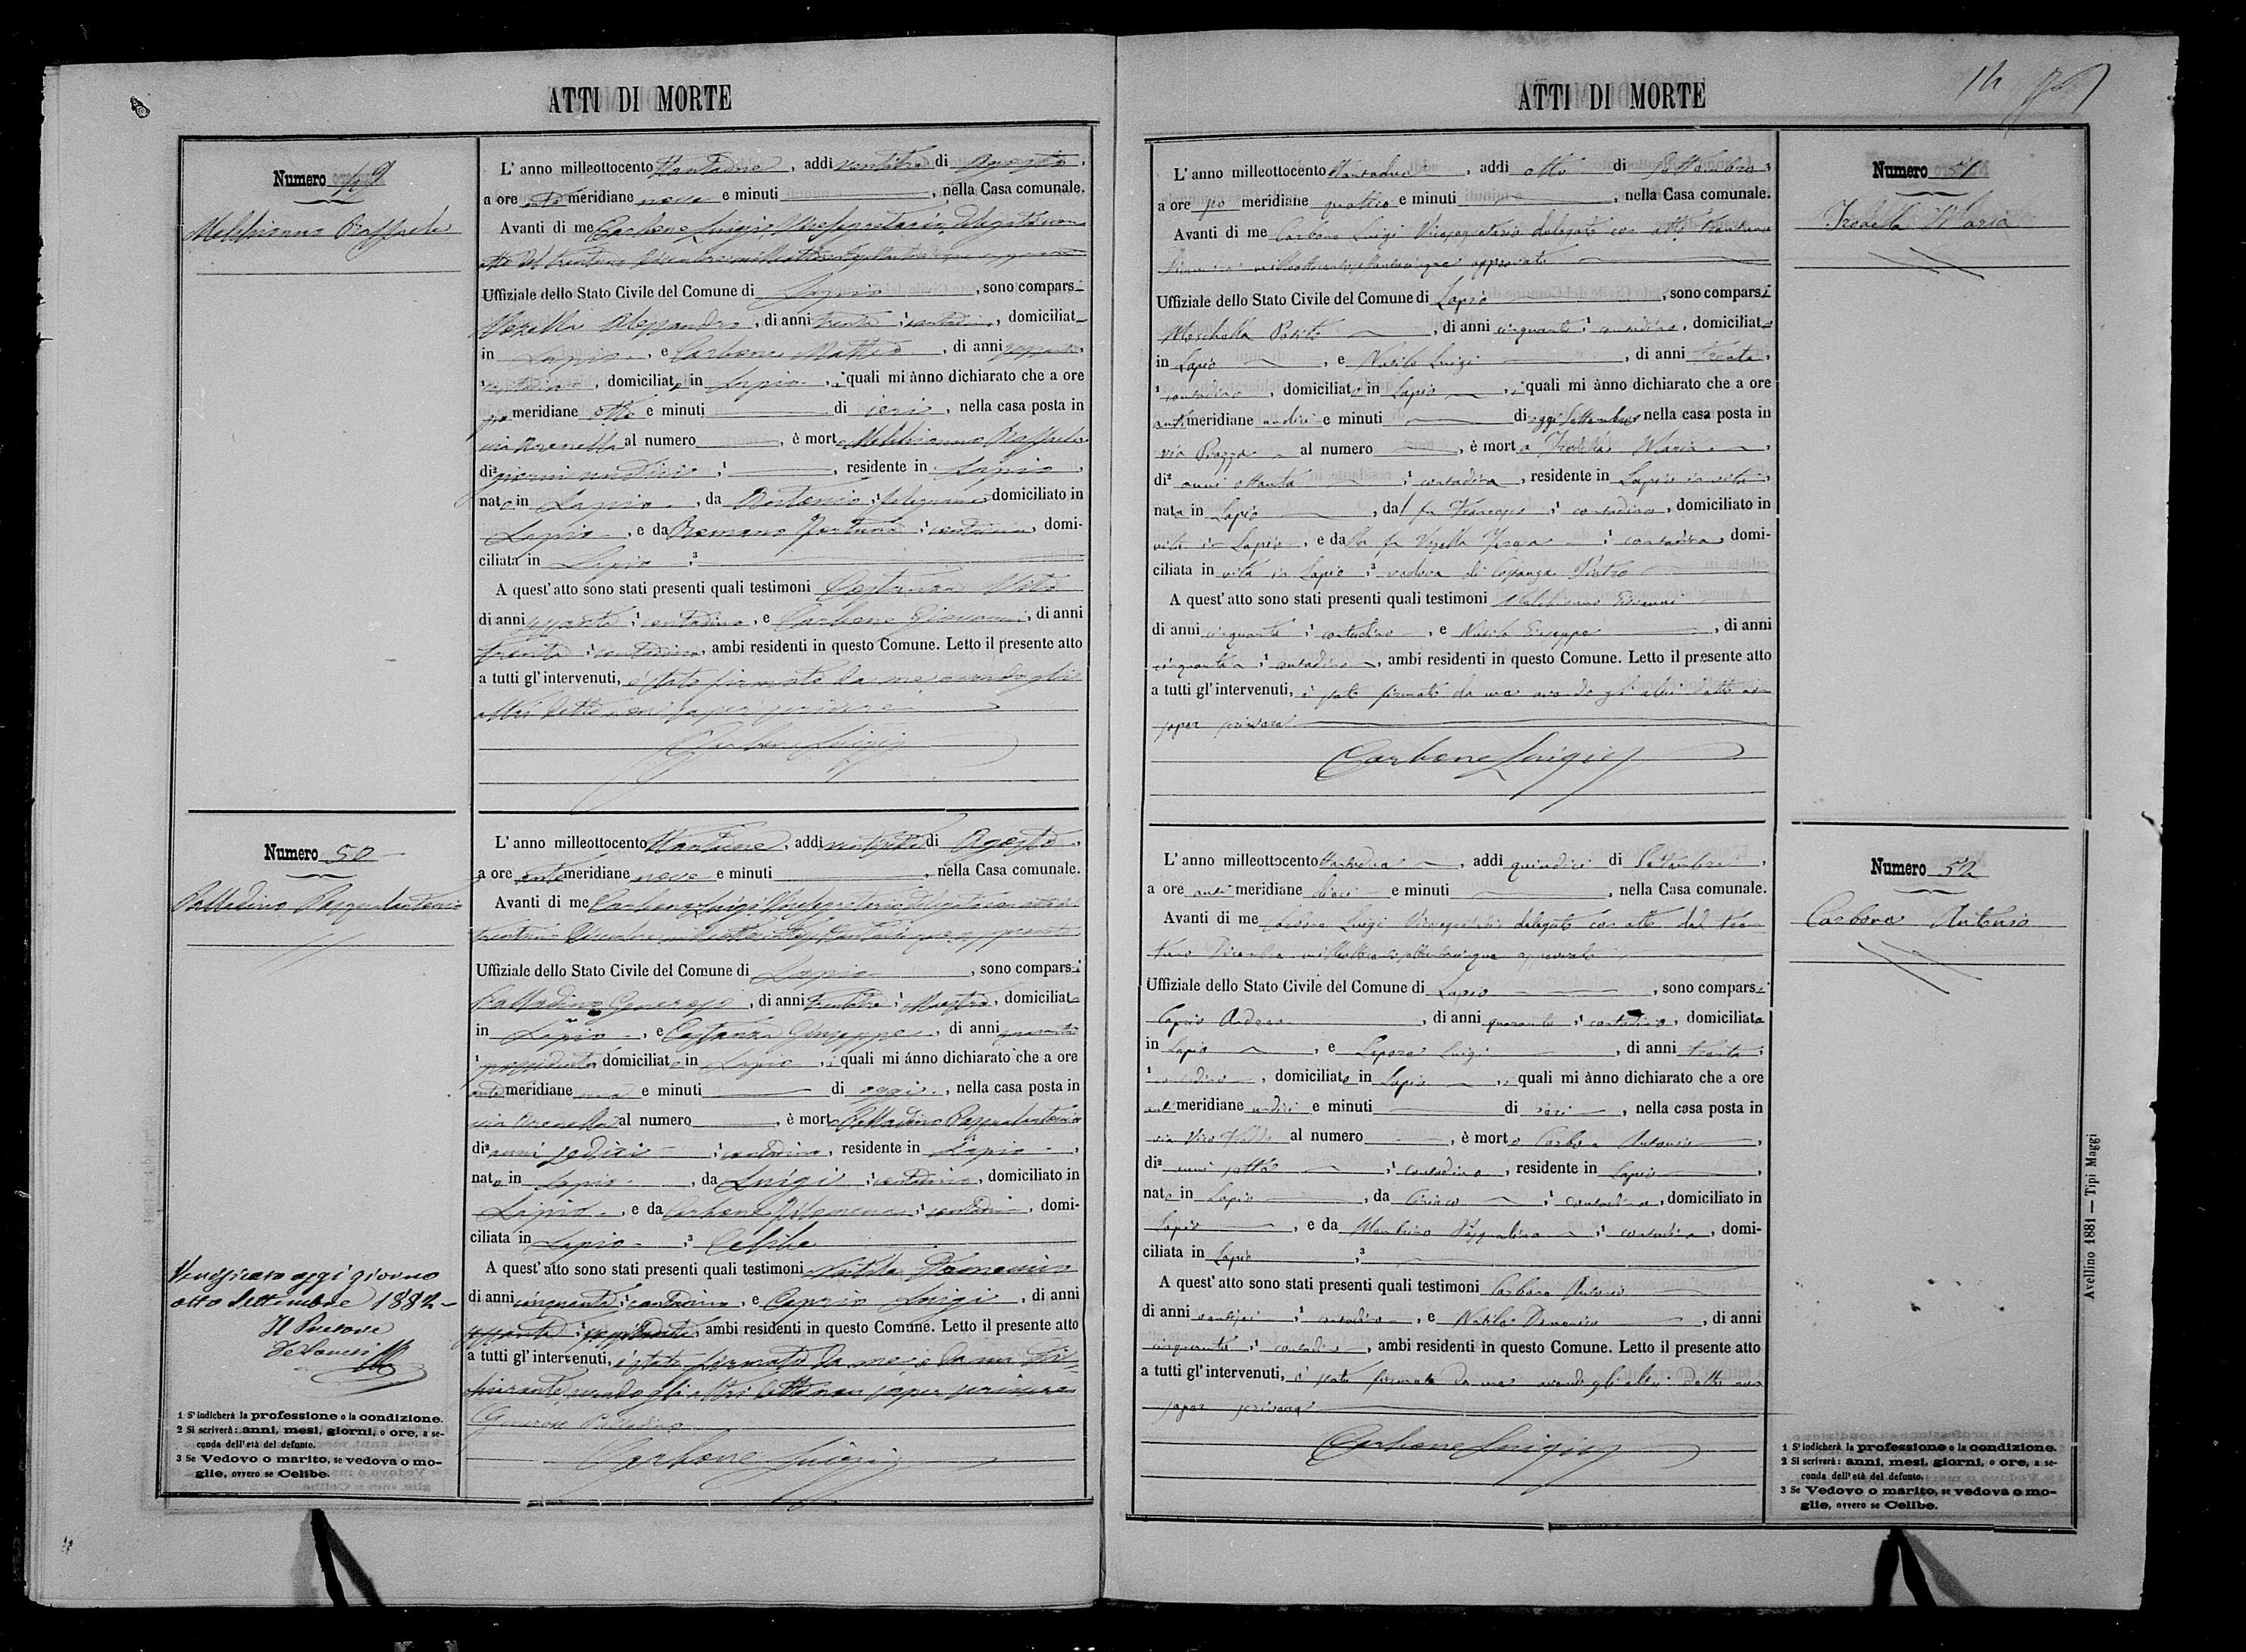 ATTI DI MORTE
Numero 49
Raffaele
L' anno milleottocento ottantadue, addì ventitre di Agosto,
a ore anti meridiane nove e minuti , nella Casa comunale.
Avanti di me Carbone Luigi Vicesegretario delegato con
atto del trentuno Dicembre milleottocentosettantacinque approvato
Uffiziale dello Stato Civile del Comune di Lapio, sono comparsi
Alessandro, di anni trenta, contadino, domiciliat
in Lapio, e Carbone Matteo, di anni sessanta,
contadino, domiciliato in Lapio, i quali mi ànno dichiarato che a ore
po meridiane otto e minuti di ieri, nella casa posta in
via al numero , è morto Raffaele
di giorni undici, residente in Lapio,
nato in Lapio, da falegname, domiciliato in
Lapio, e da Romano contadina, domi-
ciliata in Lapio
A quest'atto sono stati presenti quali testimoni Costanza Vito
di anni sessanta, contadino, e Carbone Giovanni, di anni
trenta, contadino, ambi residenti in questo Comune. Letto il presente atto
a tutti gl'intervenuti, è stato firmato da me avendo gli
altri detto non saper scrivere
Carbone Luigi
Numero 50
Palladino Pasqualantonio
L' anno milleottocento ottantadue, addì di Agosto,
a ore anti meridiane nove e minuti , nella Casa comunale.
Avanti di me Carbone Luigi Vicesegretario delegato con atto del
trentuno Dicembre milleottocentosettantacinque approvato
Uffiziale dello Stato Civile del Comune di Lapio, sono comparsi
Palladino Generoso, di anni trentatre, Maestro, domiciliato
in Lapio, e Costanza Giuseppe, di anni
possidente domiciliato in Lapio, i quali mi ànno dichiarato che a ore
anti meridiane una e minuti di oggi, nella casa posta in
via al numero , è morto Palladino Pasqualantonio
di anni sedici, contadino, residente in Lapio,
nato in Lapio, da Luigi, contadino, domiciliato in
Lapio, e da Carbone Filomena, contadina, domi-
ciliata in Lapio, Celibe
A quest'atto sono stati presenti quali testimoni Domenico
di anni cinquanta, contadino, e Caprio Luigi, di anni
sessanta, possidente, ambi residenti in questo Comune. Letto il presente atto
a tutti gl'intervenuti, è stato firmato da me e da un di-
chiarante, avendo gli altri detto non saper scrivere
Generoso Palladino
Carbone Luigi
Verificato oggi giorno
otto Settembre 1882
Il Pretore
1 S'indicherà la professione o la condizione.
2 Si scriverà: anni, mesi, giorni, o ore, a se-
conda dell'età del defunto.
3 Se Vedovo o marito, se vedova o mo-
glie, ovvero se Celibe.
ATTI DI MORTE
14
Numero 51
Maria
L' anno milleottocento ottantadue, addì otto di Settembre,
a ore po meridiane quattro e minuti , nella Casa comunale.
Avanti di me Carbone Luigi Vicesegretario delegato con atto trentuno
Dicembre milleottocentosettantacinque approvato
Uffiziale dello Stato Civile del Comune di Lapio, sono comparsi
Moschella Potito, di anni cinquanta, contadino, domiciliato
in Lapio, e Luigi, di anni trenta,
contadino, domiciliato in Lapio, i quali mi ànno dichiarato che a ore
anti meridiane undici e minuti di oggi Settembre nella casa posta in
via Piazza al numero , è morta Maria,
di anni ottanta, contadina, residente in Lapio in vita,
nata in Lapio, dal fu Francesco, contadino, domiciliato in
vita in Lapio, e dalla fu contadina, domi-
ciliata in vita in Lapio, vedova di Costanza Pietro
A quest'atto sono stati presenti quali testimoni
di anni cinquanta, contadino, e Giuseppe, di anni
cinquanta, contadino, ambi residenti in questo Comune. Letto il presente atto
a tutti gl'intervenuti, è stato firmato da me avendo gli altri detto non
saper scrivere
Carbone Luigi
Numero 52
Carbone Antonio
L' anno milleottocento ottantadue, addì quindici di Settembre,
a ore anti meridiane dieci e minuti , nella Casa comunale.
Avanti di me Carbone Luigi Vicesegretario delegato con atto del tren-
tuno Dicembre milleottocentosettantacinque approvato
Uffiziale dello Stato Civile del Comune di Lapio, sono comparsi
Caprio Andrea, di anni quaranta, contadino, domiciliato
in Lapio, e Lepore Luigi, di anni trenta,
contadino, domiciliato in Lapio, i quali mi ànno dichiarato che a ore
anti meridiane undici e minuti di ieri, nella casa posta in
via al numero , è morto Carbone Antonio,
di anni sette, contadino, residente in Lapio,
nato in Lapio, da Ciriaco, contadino, domiciliato in
Lapio, e da Pasqualina, contadina, domi-
ciliata in Lapio
A quest'atto sono stati presenti quali testimoni Carbone Antonio
di anni contadino, e Domenico, di anni
cinquanta, contadino, ambi residenti in questo Comune. Letto il presente atto
a tutti gl'intervenuti, è stato firmato da me avendo gli altri detto non
saper scrivere
Carbone Luigi
1 S'indicherà la professione o la condizione.
2 Si scriverà: anni, mesi, giorni, o ore, a se-
conda dell'età del defunto.
3 Se Vedovo o marito, se vedova o mo-
glie, ovvero se Celibe.
Avellino 1881 — Tipi Maggi